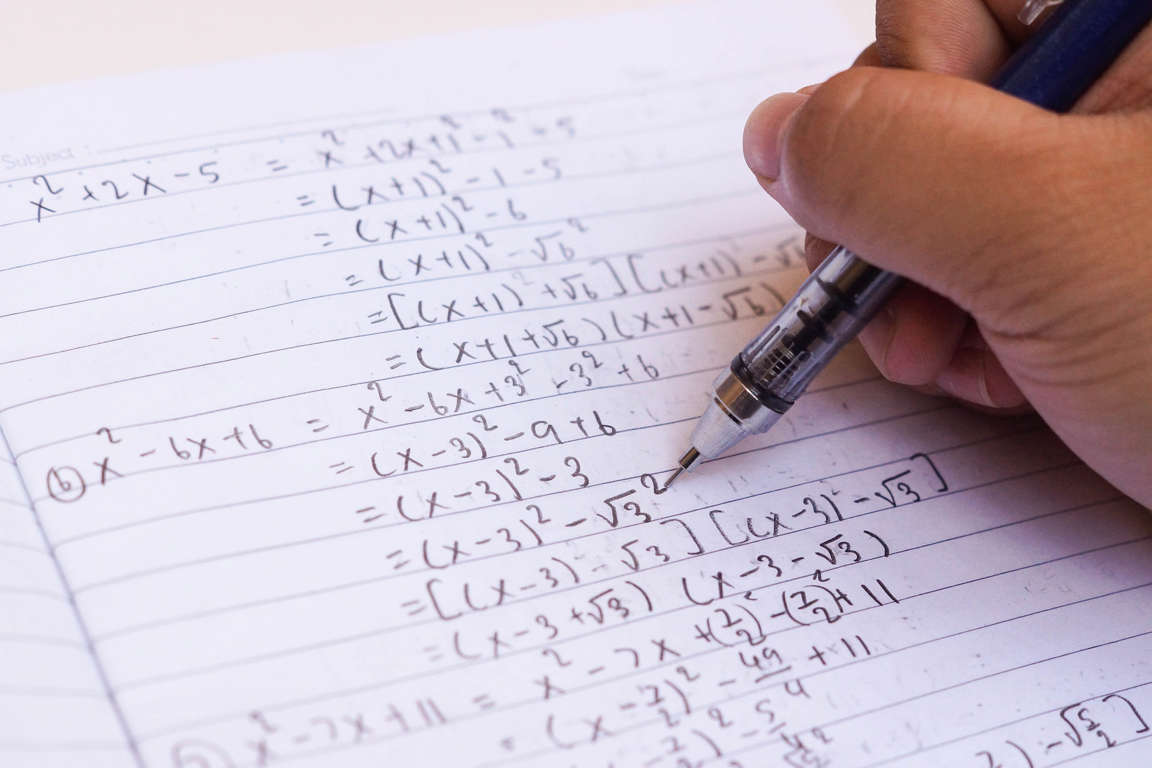 Subject :
x² + 2x - 5 = x² + 2x + 1² - 1² - 5
= (x+1)² - 1 - 5
= (x+1)² - 6
= (x+1)² - √6²
= [(x+1)² + √6] [(x+1) - √6
= (x+1+√6) (x+1-√6)
(b) x² - 6x + 6 = x² - 6x + 3² - 3² + 6
= (x-3)² - 9 + 6
= (x-3)² - 3
= (x-3)² - √3²
= [(x-3) - √3] [(x-3) - √3]
= (x-3+√3) (x-3-√3)
x² - 7x + 11 = x² - 7x + (7/2)² - (7/2)² + 11
= (x - 7/2)² - 49/4 + 11
7/2)² - 5/4
) - √5/2]